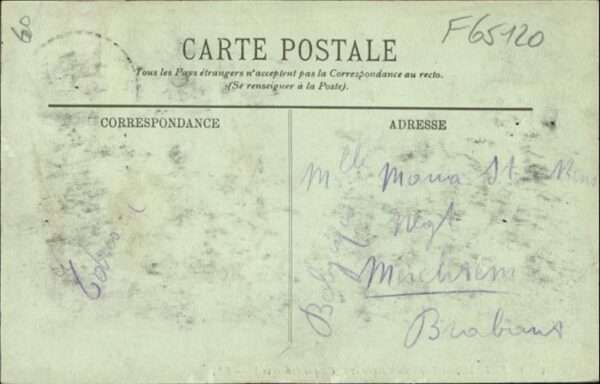 60
F65120
CARTE POSTALE
Tous les Pays étrangers n'acceptent pas la Correspondance au recto.
(Se renseigner à la Poste).
CORRESPONDANCE
ADRESSE
Mlle Maria St.
Brabant